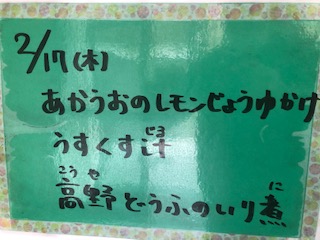 2/17(木)
あかうおのレモンじょうゆかけ
うすくず汁
じる
高野どうふのいり煮
こうや
に